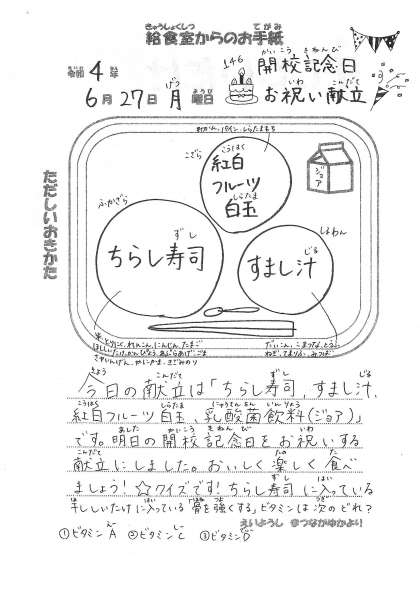 きゅうしょくしつ てがみ
給食室からのお手紙
令和4年
6月27日月曜日
146 開校記念日
お祝い献立
ただしいおきかた
みかん、パイン、しらたまもち
こざら
紅白
フルーツ
白玉
ジョア
ふかざら
ちらし寿司
しるわん
すまし汁
米、とりにく、れんこん、にんじん、たまご
ほししいたけ、かんぴょう、あぶらあげ、ごま
さやいんげん、かにかま、きざみのり
だいこん、こまつな、とうふ
ねぎ、てまりふ、みつば
今日の献立は「ちらし寿司、すまし汁、
紅白フルーツ白玉、乳酸菌飲料(ジョア)」
です。明日の開校記念日をお祝いする
献立にしました。おいしく楽しく食べ
ましょう!☆クイズです!ちらし寿司に入っている
干ししいたけに入っている「骨を強くする」ビタミンは次のどれ?
えいようし @つながゆかより
①ビタミンA ②ビタミンC ③ビタミンD